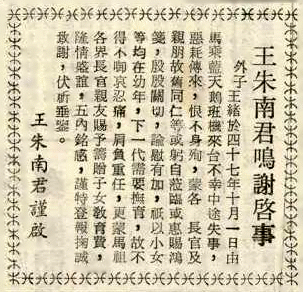 王朱南君鳴謝啓事
外子王緒於四十七年十月一日由
馬乘藍天鵝班機來台不幸中途失事，
惡耗傳來，恨不身殉，蒙各　長官及
親朋故舊同仁等或躬自蒞臨或惠賜鴻
箋，殷殷關切，諭慰有加，祇以小女
等均在幼年，下一代需要撫育，故不
得不啣哀忍痛，肩負重任，更蒙馬祖
各界長官親友賜予壽賻子女敎育費，
隆情盛誼，五內銘感，謹特登報掬誠
致謝，伏祈垂鑒。
王朱南君謹啟